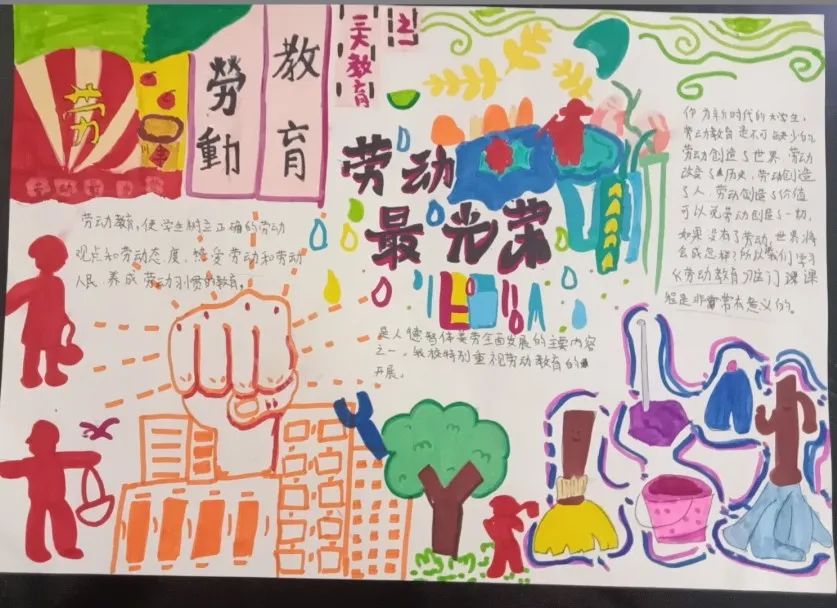 劳
勞動
教育
三大教育
之一
劳动
最光荣
劳动教育,使学生树立正确的劳动
观点和劳动态度,热爱劳动和劳动
人民 养成劳动习惯的教育。
是人德智体美劳全面发展的主要内容
之一,我校特别重视劳动教育的
开展。
作为新时代的大学生,
劳动教育是不可缺少的
劳动创造了世界,劳动
改变了历史,劳动创造
了人,劳动创造了价值
可以说劳动创造了一切,
如果没有了劳动,世界将
会成怎样?所以我们学习
《劳动教育》这门课课
程是非常有意义的。